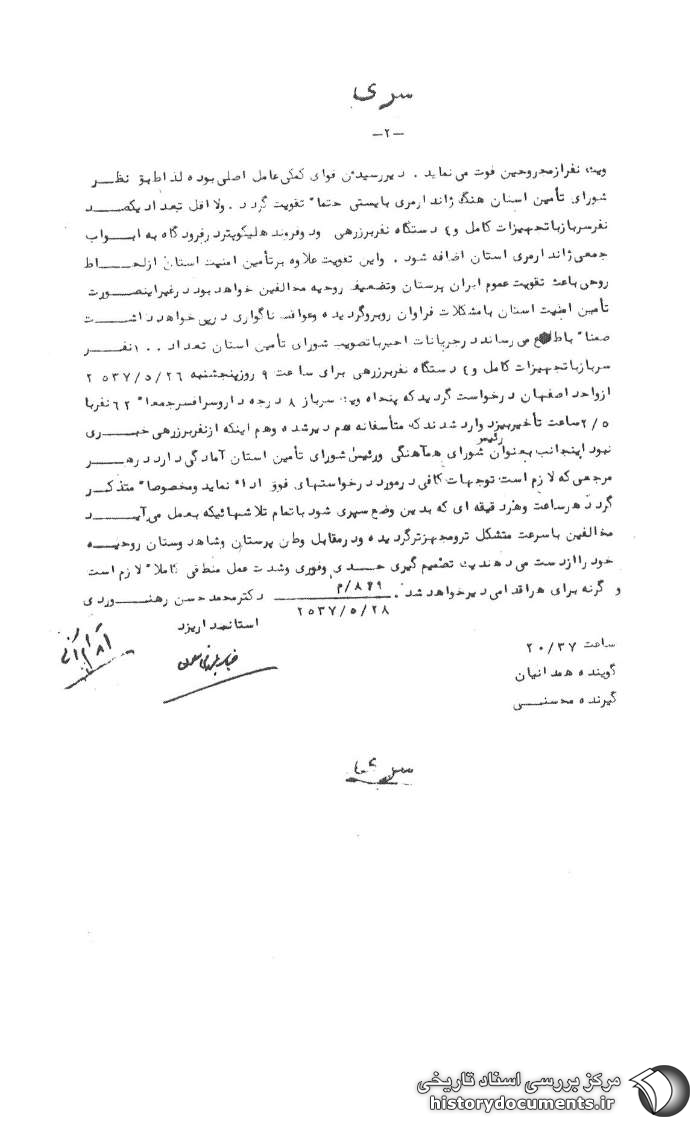 سری
-۲-
ویک نفر از مجروحین فوت می نماید . دیر رسیدن قوای کمکی عامل اصلی بوده لذا طبق نظر
شورای تأمین استان هنگ ژاندارمری بایستی حتما" تقویت گردد . ولااقل تعداد یکصد
نفر سرباز با تجهیزات کامل و ٤ دستگاه نفربر زرهی ودو فروند هلیکوپتر در فرودگاه به ابواب
جمعی ژاندارمری استان اضافه شود . واین تقویت علاوه بر تأمین امنیت استان از لحاظ
روحی باعث تقویت عموم ایران پرستان وتضعیف روحیه مخالفین خواهد بود در غیر اینصورت
تأمین امنیت استان با مشکلات فراوان روبرو گردیده وعواقب ناگواری در پی خواهد داشت
ضمنا" باطلاع می رساند در جریانات اخیر با تصویب شورای تأمین استان تعداد ۱۰۰ نفر
سرباز با تجهیزات کامل و ٤ دستگاه نفربر زرهی برای ساعت ۹ روز پنجشنبه ۲۵۳۷/۵/۲۶
از واحد اصفهان درخواست گردید که پنجاه ویک سرباز ۸ درجه دار وسه افسر جمعا" ۶۲ نفر با
۲/۵ ساعت تأخیر بیزد وارد شدند که متأسفانه هم دیر شده وهم اینکه از نفربر زرهی خبری
نبود اینجانب بعنوان رئیس شورای هم آهنگی ورئیس شورای تأمین استان آمادگی دارد در هر
مرجعی که لازم است توجیهات کافی در مورد درخواستهای فوق ادا نماید ومخصوصا" متذکر
گردد هر ساعت وهر دقیقه ای که بدین وضع سپری شود با تمام تلاشهائیکه بعمل می آید
مخالفین با سرعت متشکل تر ومجهزتر گردیده ودر مقابل وطن پرستان وشاهدوستان روحیه
خود را از دست می دهند یک تصمیم گیری جدی وفوری وشدت عمل منطقی کاملا" لازم است
و گرنه برای هر اقدامی دیر خواهد شد . ۸۴۹/م دکتر محمد حسن رهنوردی
۲۵۳۷/۵/۲۸
استاندار یزد
ساعت ۲۰/۳۷
گوینده همدانیان
گیرنده محسنی
سری
مرکز بررسی اسناد تاریخی
historydocuments.ir